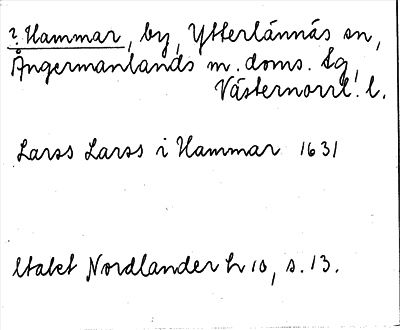 ? Hammar, by, Ytterlännäs sn,
Ångermanlands m. doms. sg,
Västernorrl. l.
Larss Larss i Hammar 1631
Nordlander h 10, s. 13.